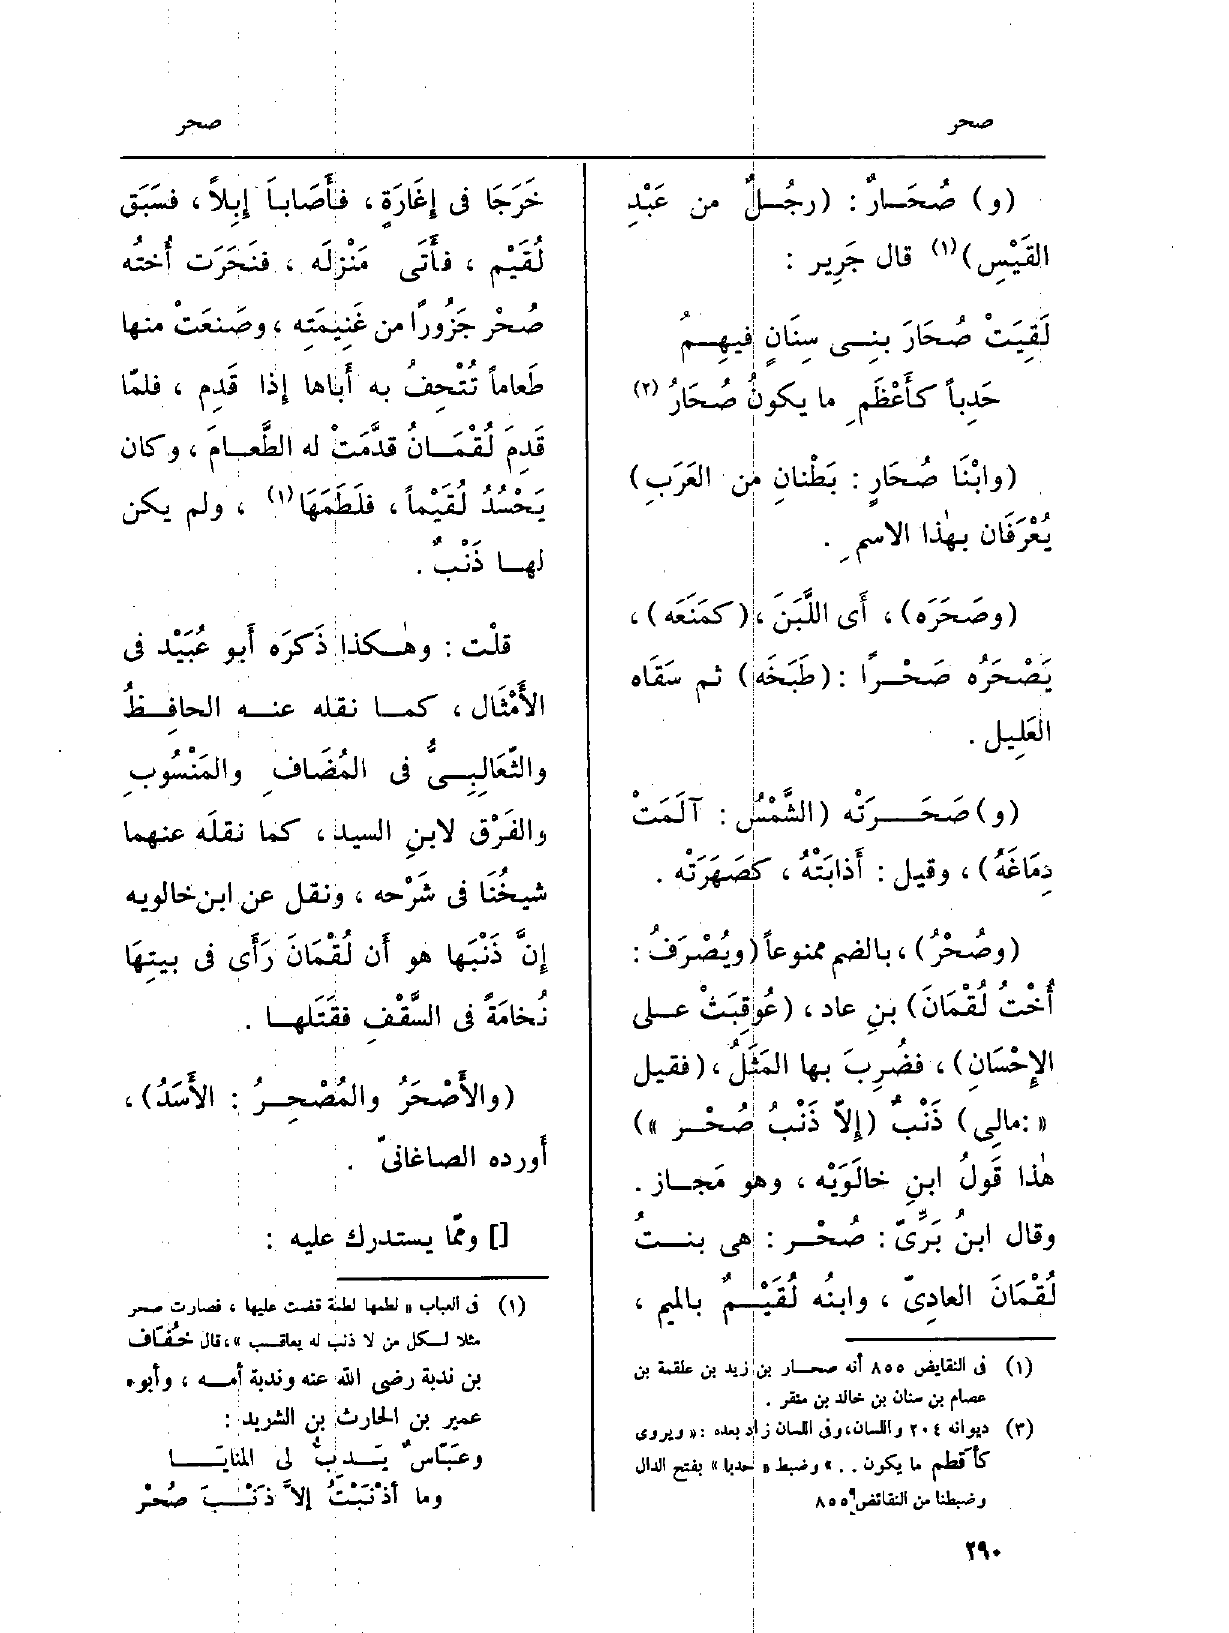 صحر
صحر
(و) صُحَارٌ : (رجُلٌ من عَبْدِ
القَيْسِ)(١) قال جَرِير :
لَقِيَتْ صُحَارَ بنِى سِنَانٍ فيهِمُ
حَدِباً كأَعْظَمِ ما يكونُ صُحَارُ (٢)
(وابْنَا صُحَارٍ : بَطْنانِ من العَرَبِ)
يُعْرَفَان بهٰذا الاسمِ .
(وصَحَرَه) ، أَى اللَّبَنَ ، (كمَنَعَه) ،
يَصْحَرُه صَحْرًا : (طَبَخَه) ثم سَقَاه
العَلِيل .
(و) صَحَرَتْه (الشَّمْسُ : آلَمَتْ
دِمَاغَهُ) ، وقيل : أَذابَتْهُ ، كصَهَرَتْه .
(وصُحْرُ) ، بالضم ممنوعاً (ويُصْرَفُ :
أُخْتُ لُقْمَانَ) بنِ عاد ، (عُوقِبَتْ على
الإِحْسَانِ) ، فضُرِبَ بها المَثَلُ ، (فقيل
: «مالِى) ذَنْبٌ (إِلاّ ذَنْبُ صُحْر »)
هٰذا قَولُ ابنِ خالَوَيْه ، وهو مَجاز .
وقال ابنُ بَرِّىّ : صُحْر : هى بنتُ
لُقْمَانَ العادِىّ ، وابنُه لُقَيْمٌ بالميم ،
(١) فى النقايض ٨٥٥ أنه صحار بن زيد بن علقمة بن
عصام بن سنان بن خالد بن منقر .
(٢) ديوانه ٢٠٤ واللسان، وفى اللسان زاد بعده : « ويروى
كأقطم ما يكون . . » وضبط « حدبا » بفتح الدال
وضبطنا من النقائض ٨٥٥
خَرَجَا فى إِغَارَةٍ ، فأَصَابَا إِبِلاً ، فسَبَق
لُقَيْم ، فأَتَى مَنْزِلَه ، فنَحَرَت أُخْتُه
صُحْر جَزُورًا من غَنِيمَتِه ، وصَنعَتْ منها
طَعاماً تُتْحِفُ به أَباها إِذا قَدِم ، فلمّا
قَدِمَ لُقْمَانُ قدَّمَتْ له الطَّعَامَ ، وكان
يَحْسُدُ لُقَيْماً ، فلَطَمَهَا(١) ، ولم يكن
لها ذَنْبٌ .
قلْت : وهٰكذا ذَكرَه أَبو عُبَيْد فى
الأَمْثَال ، كما نقله عنه الحافِظُ
والثّعَالِبِىُّ فى المُضَافِ والمَنْسُوبِ
والفَرْق لابنِ السيد ، كما نقلَه عنهما
شيخُنَا فى شَرْحه ، ونقل عن ابن خالويه
إِنَّ ذَنْبَها هو أَن لُقْمَانَ رَأَى فى بيتِهَا
نُخامَةً فى السَّقْفِ فقَتَلها .
(والأَصْحَرُ والمُصْحِرُ : الأَسَدُ) ،
أَورده الصاغانىّ .
[] وممّا يستدرك عليه :
(١) فى العباب « لطمها لطمة قضت عليها ، فصارت صحر
مثلا لكل من لا ذنب له يعاقب » ، قال خُفَاف
بن ندبة رضى الله عنه وندبة أمه ، وأبوه
عمير بن الحارث بن الشريد :
وعبّاسٌ يَدِبُّ لى المنايَا
وما أَذْنَبْتُ إِلاَّ ذَنْبَ صُحْرِ
٢٩٠